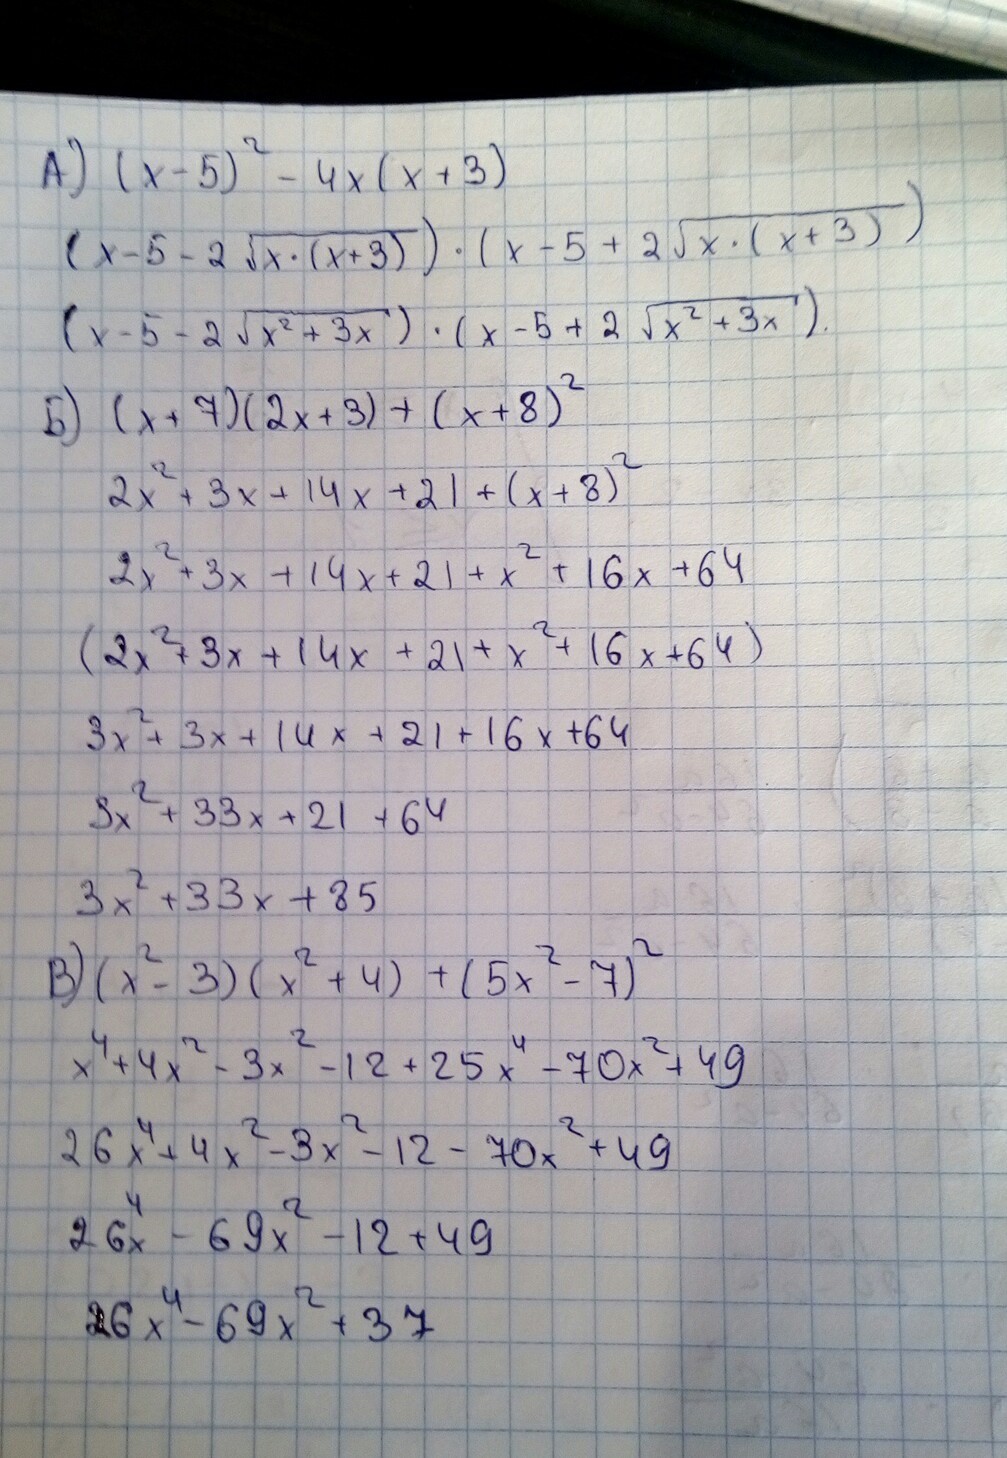 А) (x-5)² - 4x(x+3)
(x-5-2√x·(x+3))·(x-5+2√x·(x+3))
(x-5-2√x²+3x)·(x-5+2√x²+3x).
Б) (x+7)(2x+3)+(x+8)²
2x²+3x+14x+21+(x+8)²
2x²+3x+14x+21+x²+16x+64
(2x²+3x+14x+21+x²+16x+64)
3x²+3x+14x+21+16x+64
3x²+33x+21+64
3x²+33x+85
В) (x²-3)(x²+4)+(5x²-7)²
x⁴+4x²-3x²-12+25x⁴-70x²+49
26x⁴+4x²-3x²-12-70x²+49
26x⁴-69x²-12+49
26x⁴-69x²+37